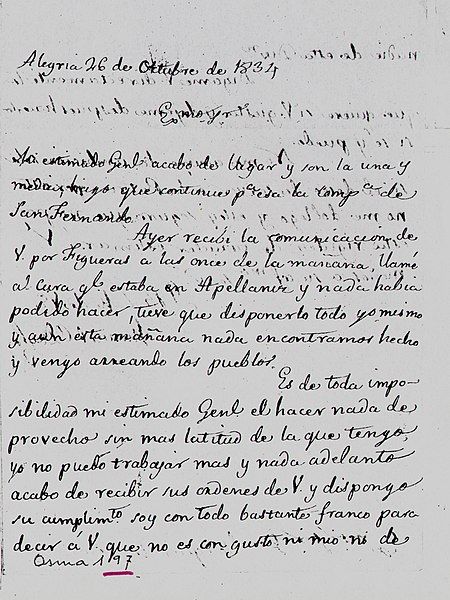 Alegria 26 de Octubre de 1834
Exmo. Sr.
Mi estimado Genl. acabo de llegar y son la una y
media, hago que continue pa. esa la compa. de
San Fernando.
Ayer recibi la comunicacion de
V. por Figueras a las once de la mañana, llamé
al cura ql. estaba en Apellaniz y nada habia
podido hacer, tuve que disponerlo todo yo mismo
y aun esta mañana nada encontramos hecho
y vengo arreando los pueblos.
Es de toda impo-
sibilidad mi estimado Genl. el hacer nada de
provecho sin mas latitud de la que tengo,
yo no puedo trabajar mas y nada adelanto
acabo de recibir sus ordenes de V. y dispongo
su cumplimto. soy con todo bastante franco para
decir á V. que no es con gusto ni mio ni de
Osma 197